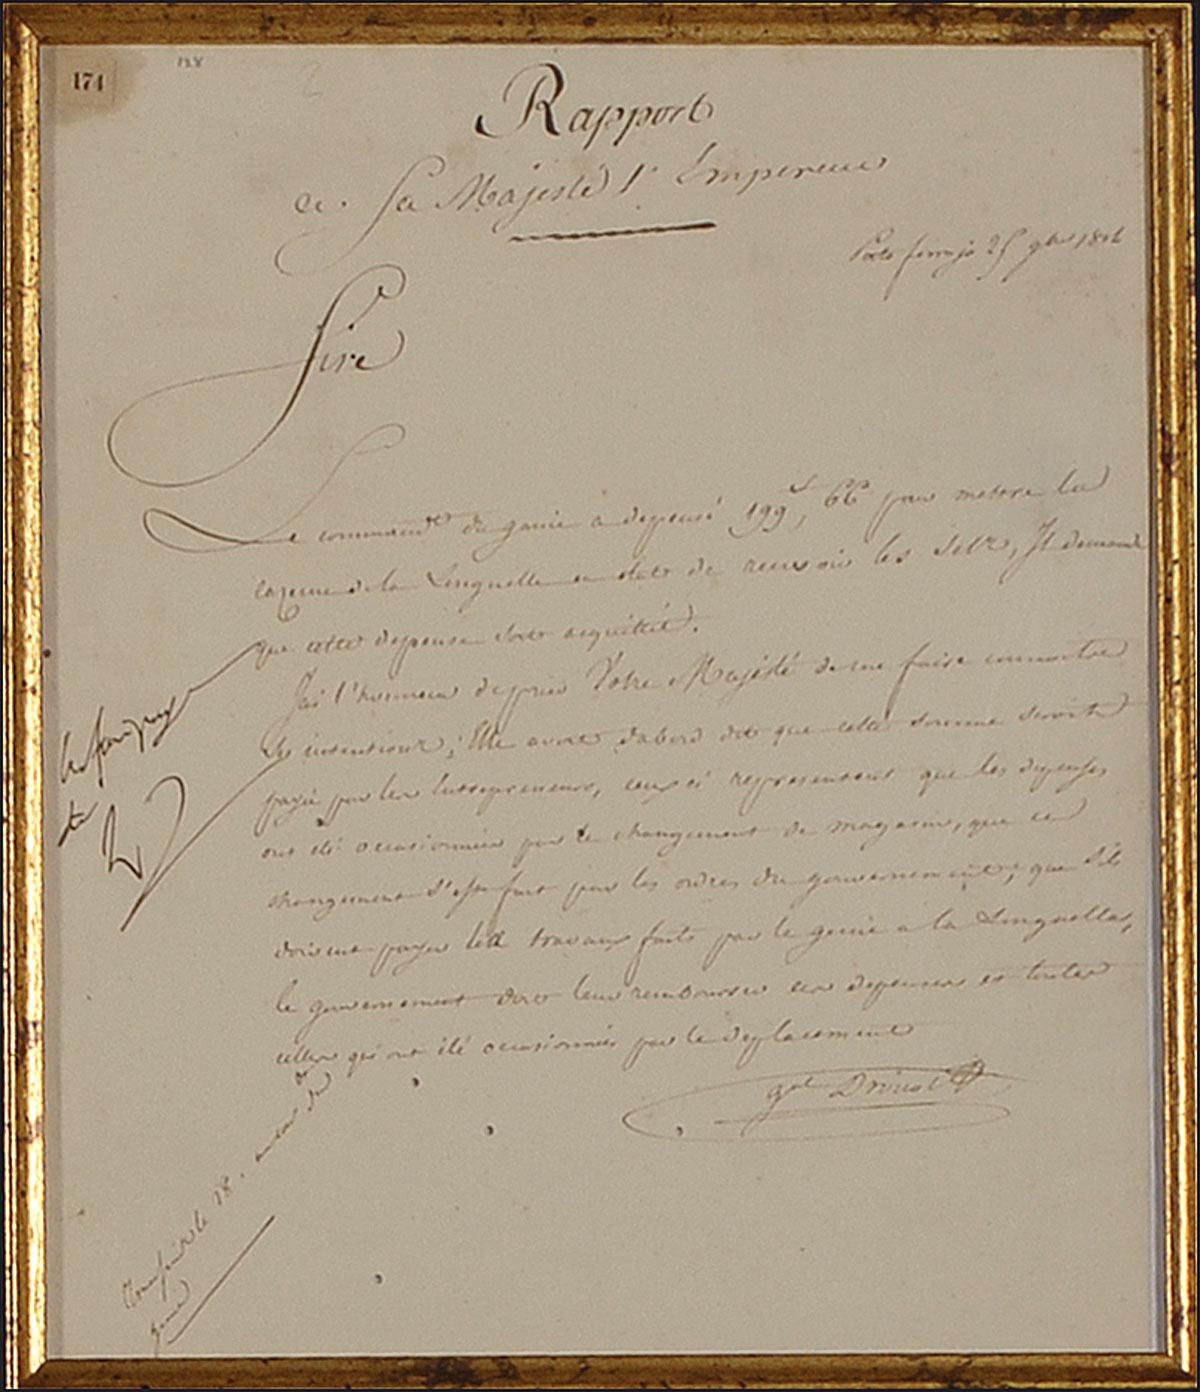 174
138
Rapport
a Sa Majesté l'Empereur
Porto ferrajo 25 9bre 1814
Sire
Le commandt du genie a depensé 199f, 66c pour mettre la
cazerne de la Linguella en etat de recevoir les sels, Il demande
que cette depense soit acquittée.
J'ai l'honneur de prier Votre Majesté de me faire connaitre
ses intentions; Elle avait d'abord dit que cette somme serait
payée par les Entrepreneurs, ceux ci representent que les depenses
ont été occasionnées par le changement de magasin, que ce
changement s'est fait par les ordres du gouvernement; que s'ils
doivent payer les travaux faits par le genie a la Linguella,
le gouvernement doit leur rembourser ces depenses et toutes
celles qui ont été occasionnées par le deplacement
gal Drouot
le 18
genie